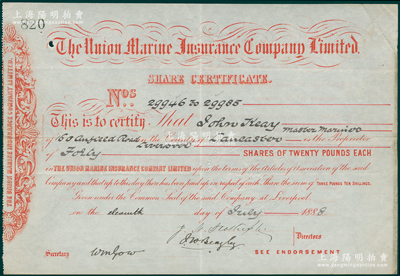 上海阳明拍卖
820
The Union Marine Insurance Company Limited.
SHARE CERTIFICATE.
Nos. 29946 to 29985
This is to certify That John Keay Master Mariner
of 160 Anfield Road Liverpool in the County of Lancaster is the Proprietor
of Forty SHARES OF TWENTY POUNDS EACH
IN THE UNION MARINE INSURANCE COMPANY LIMITED upon the terms of the Articles of Association of the said
Company and that up to this day there has been paid up in respect of each share the sum of THREE POUNDS TEN SHILLINGS.
Given under the Common Seal of the said Company at Liverpool
on the eleventh day of July 1888
Directors
Secretary
SEE ENDORSEMENT
THE UNION MARINE INSURANCE COMPANY LIMITED.